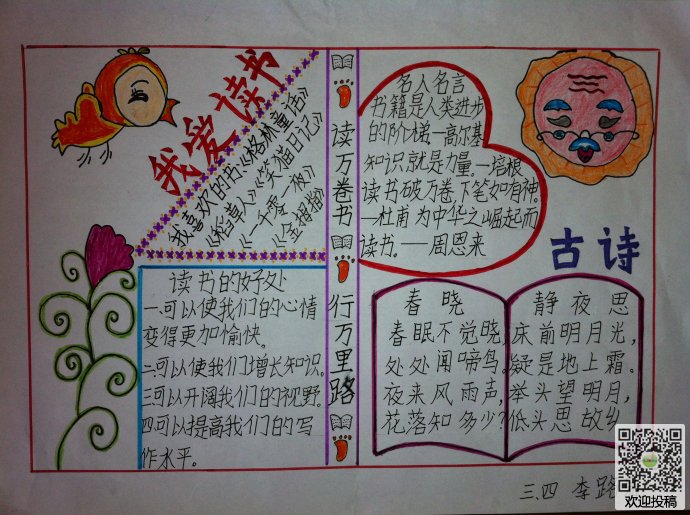 我爱读书
我喜欢的书《格林童话》
《稻草人》《笑猫日记》
《一千零一夜》
读书的好处
一可以使我们的心情
变得更加愉快。
二可以使我们增长知识。
三可以开阔我们的视野。
四可以提高我们的写
作水平。
读万卷书
行万里路
名人名言
书籍是人类进步
的阶梯—高尔基
知识就是力量。—培根
读书破万卷下笔如有神。
—杜甫 为中华之崛起而
读书。——周恩来
古诗
春晓
春眠不觉晓,
处处闻啼鸟。
夜来风雨声,
花落知多少?
静夜思
床前明月光,
疑是地上霜。
举头望明月,
低头思故乡
三.四 李路
欢迎投稿